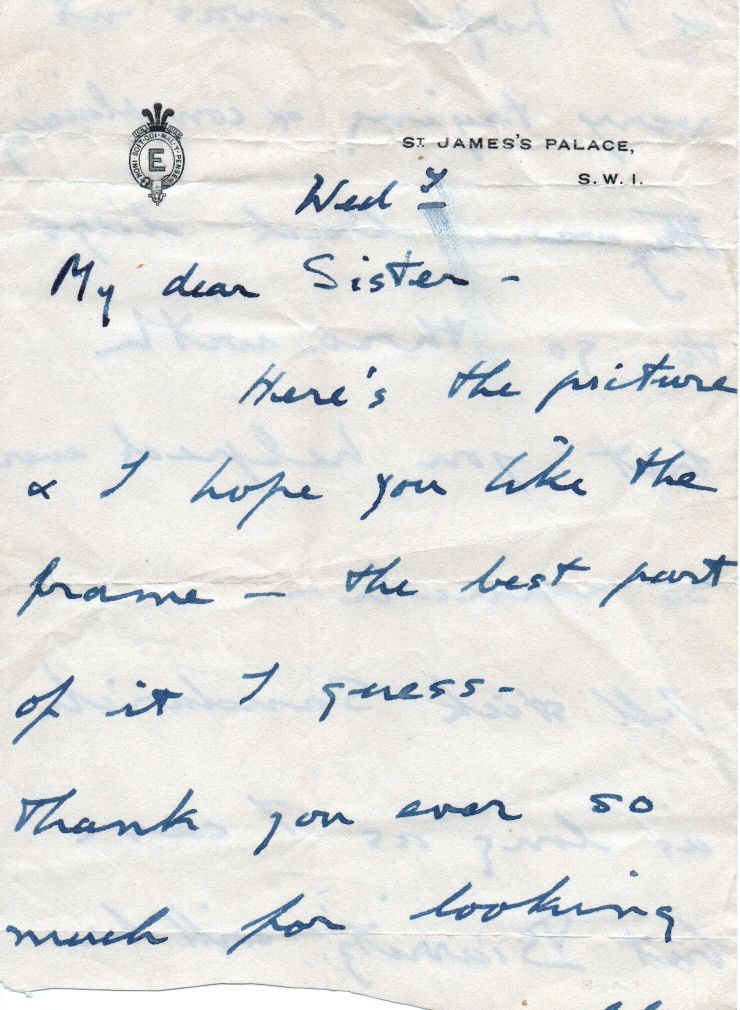 HONI · SOIT · QUI · MAL · Y · PENSE
E
ST. JAMES'S PALACE,
S. W. 1.
Wed y
My dear Sister -
Here's the picture
& I hope you like the
frame - the best part
of it I guess -
Thank you ever so
much for looking